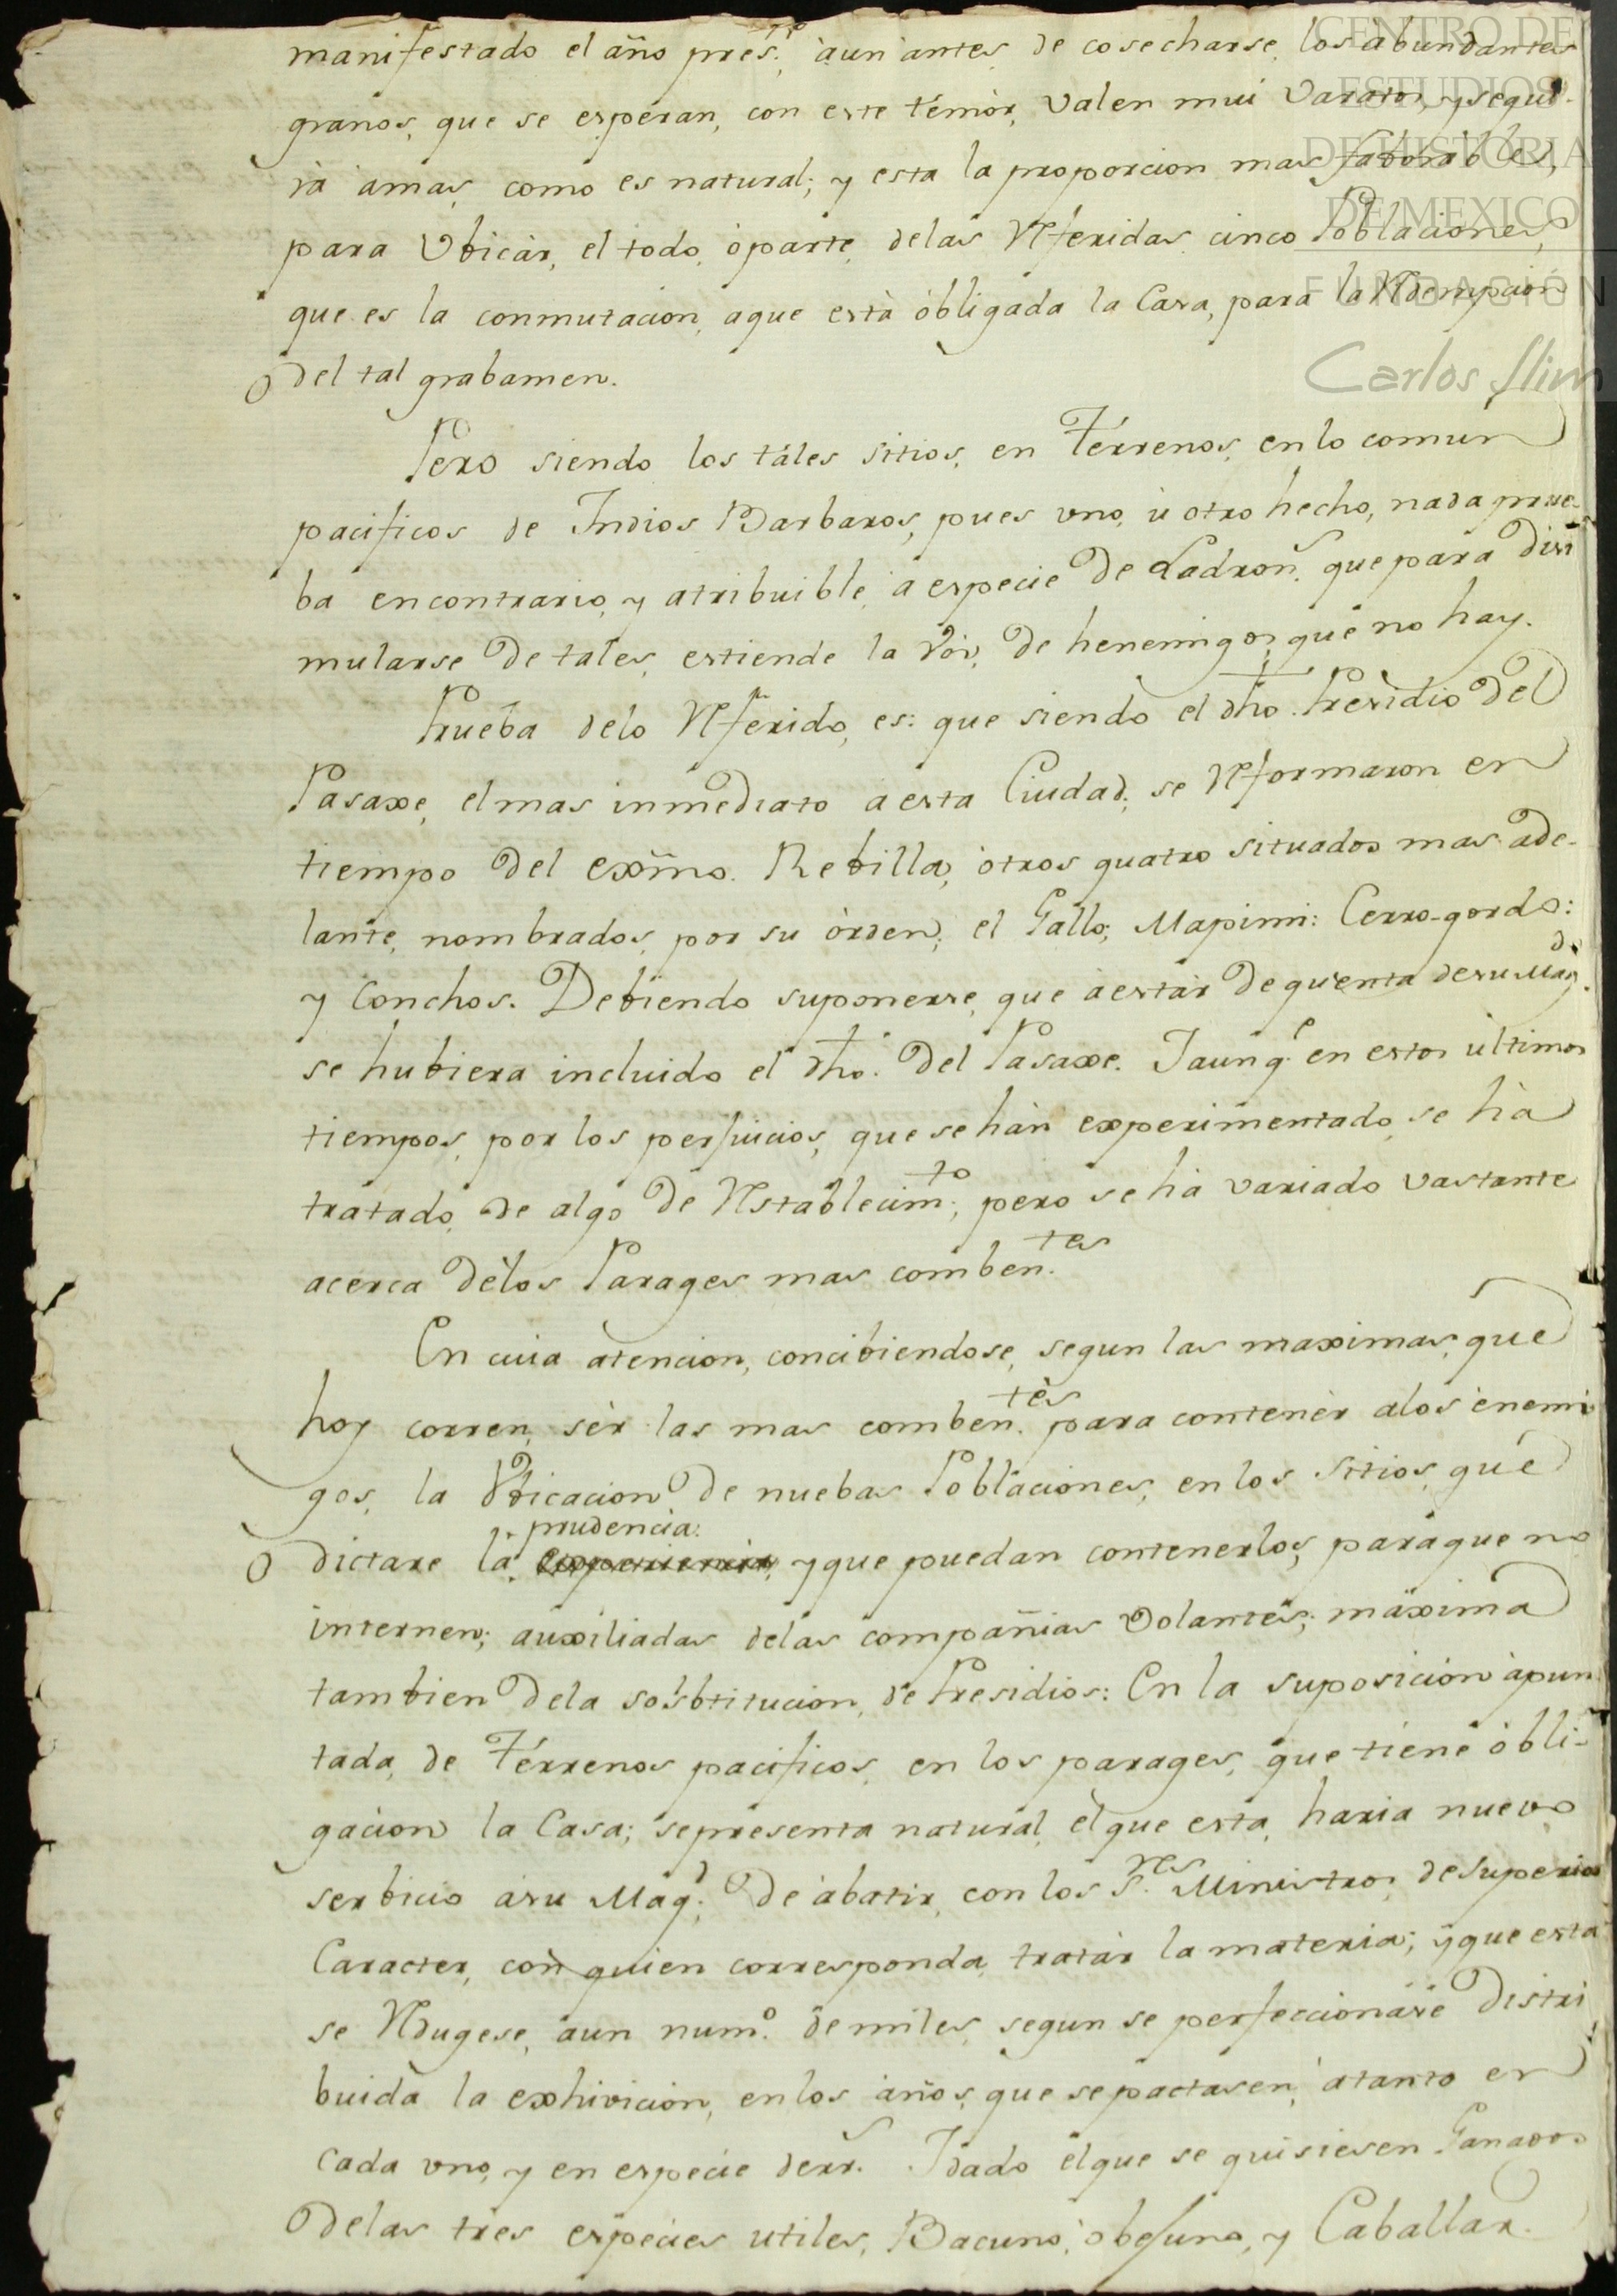 manifestado el año pres.te, àun àntes de cosecharse los àbundantes
granos, que se espèran, con este tèmòr, valen mui varatos, y segui-
rà àmas, como es natural; y esta la proporcion mas faborable,
para Vbicàr, el todo, òparte, delas Referidas cinco Poblaciones,
que es la conmutacion, aque està òbligada la Casa, para la Redempcion
del tal grabamen.
Pero siendo los tàles sitios, en Tèrrenos, enlo comun
pacificos de Indios Barbaros, pues vno, ù otro hecho, nada prue-
ba encontrario, y atribuible, à especie de Ladron.s que para disi
mularse de tales, estiende la Vòz, de henemigos, que no hay.
Prueba delo Referido, es: que siendo el dho. Presidio del
Pasaxe, elmas inmediato aesta Ciudad; se Reformaron en
tiempo del exm̃o. Rebilla, òtros quatro situados mas ade-
lante, nombrados, por su òrden; el Gallo; Mapimi: Cerro-gordo:
y Conchos. Debiendo suponerse, que àestàr de quenta desu Mag.d
se hubiera incluido el dho. del Pasaxe. Iaunq.e en estos ultimos
tiempos, por los perjuicios, que se hàn experimentado, se hà
tratado, de algo de Restablecim.to; pero se hà variado vastante
acerca delos Parages mas comben.tes
En cuia atencion, concibiendose, segun las maximas, que
hoy corren, sèr las mas comben.tes para contenèr alos ènemi
gos, la Vbicacion de nuebas Poblaciones, en los sitios, que
prudencia:
dictare la experiencia, y que puedan contenerlos, paraque no
internen; auxiliadas delas compañias Volantes; màxima
tambien dela sosbtitucion, de Presidios: En la suposicion àpun
tada, de Tèrrenos pacificos, en los parages, que tiene òbli-
gacion la Casa; sepresenta natural, èlque esta, haria nuevo
serbicio àsu Mag.d; De àbatir, con los S.res Ministros, desuperior
Caracter, con quien corresponda, tratàr la materia; y que esta
se Redugese, àun num.o de miles, segun se perfeccionàse distri
buida la exhivicion, enlos àños, que se pactasen, àtanto en
cada vno, y en especie derr.s Idado èlque se quisiesen Ganados
Delas tres especies utiles, Bacuno, òbejuno, y Caballar.
CENTRO DE
ESTUDIOS
DE HISTORIA
DE MEXICO
FUNDACIÓN
Carlos Slim